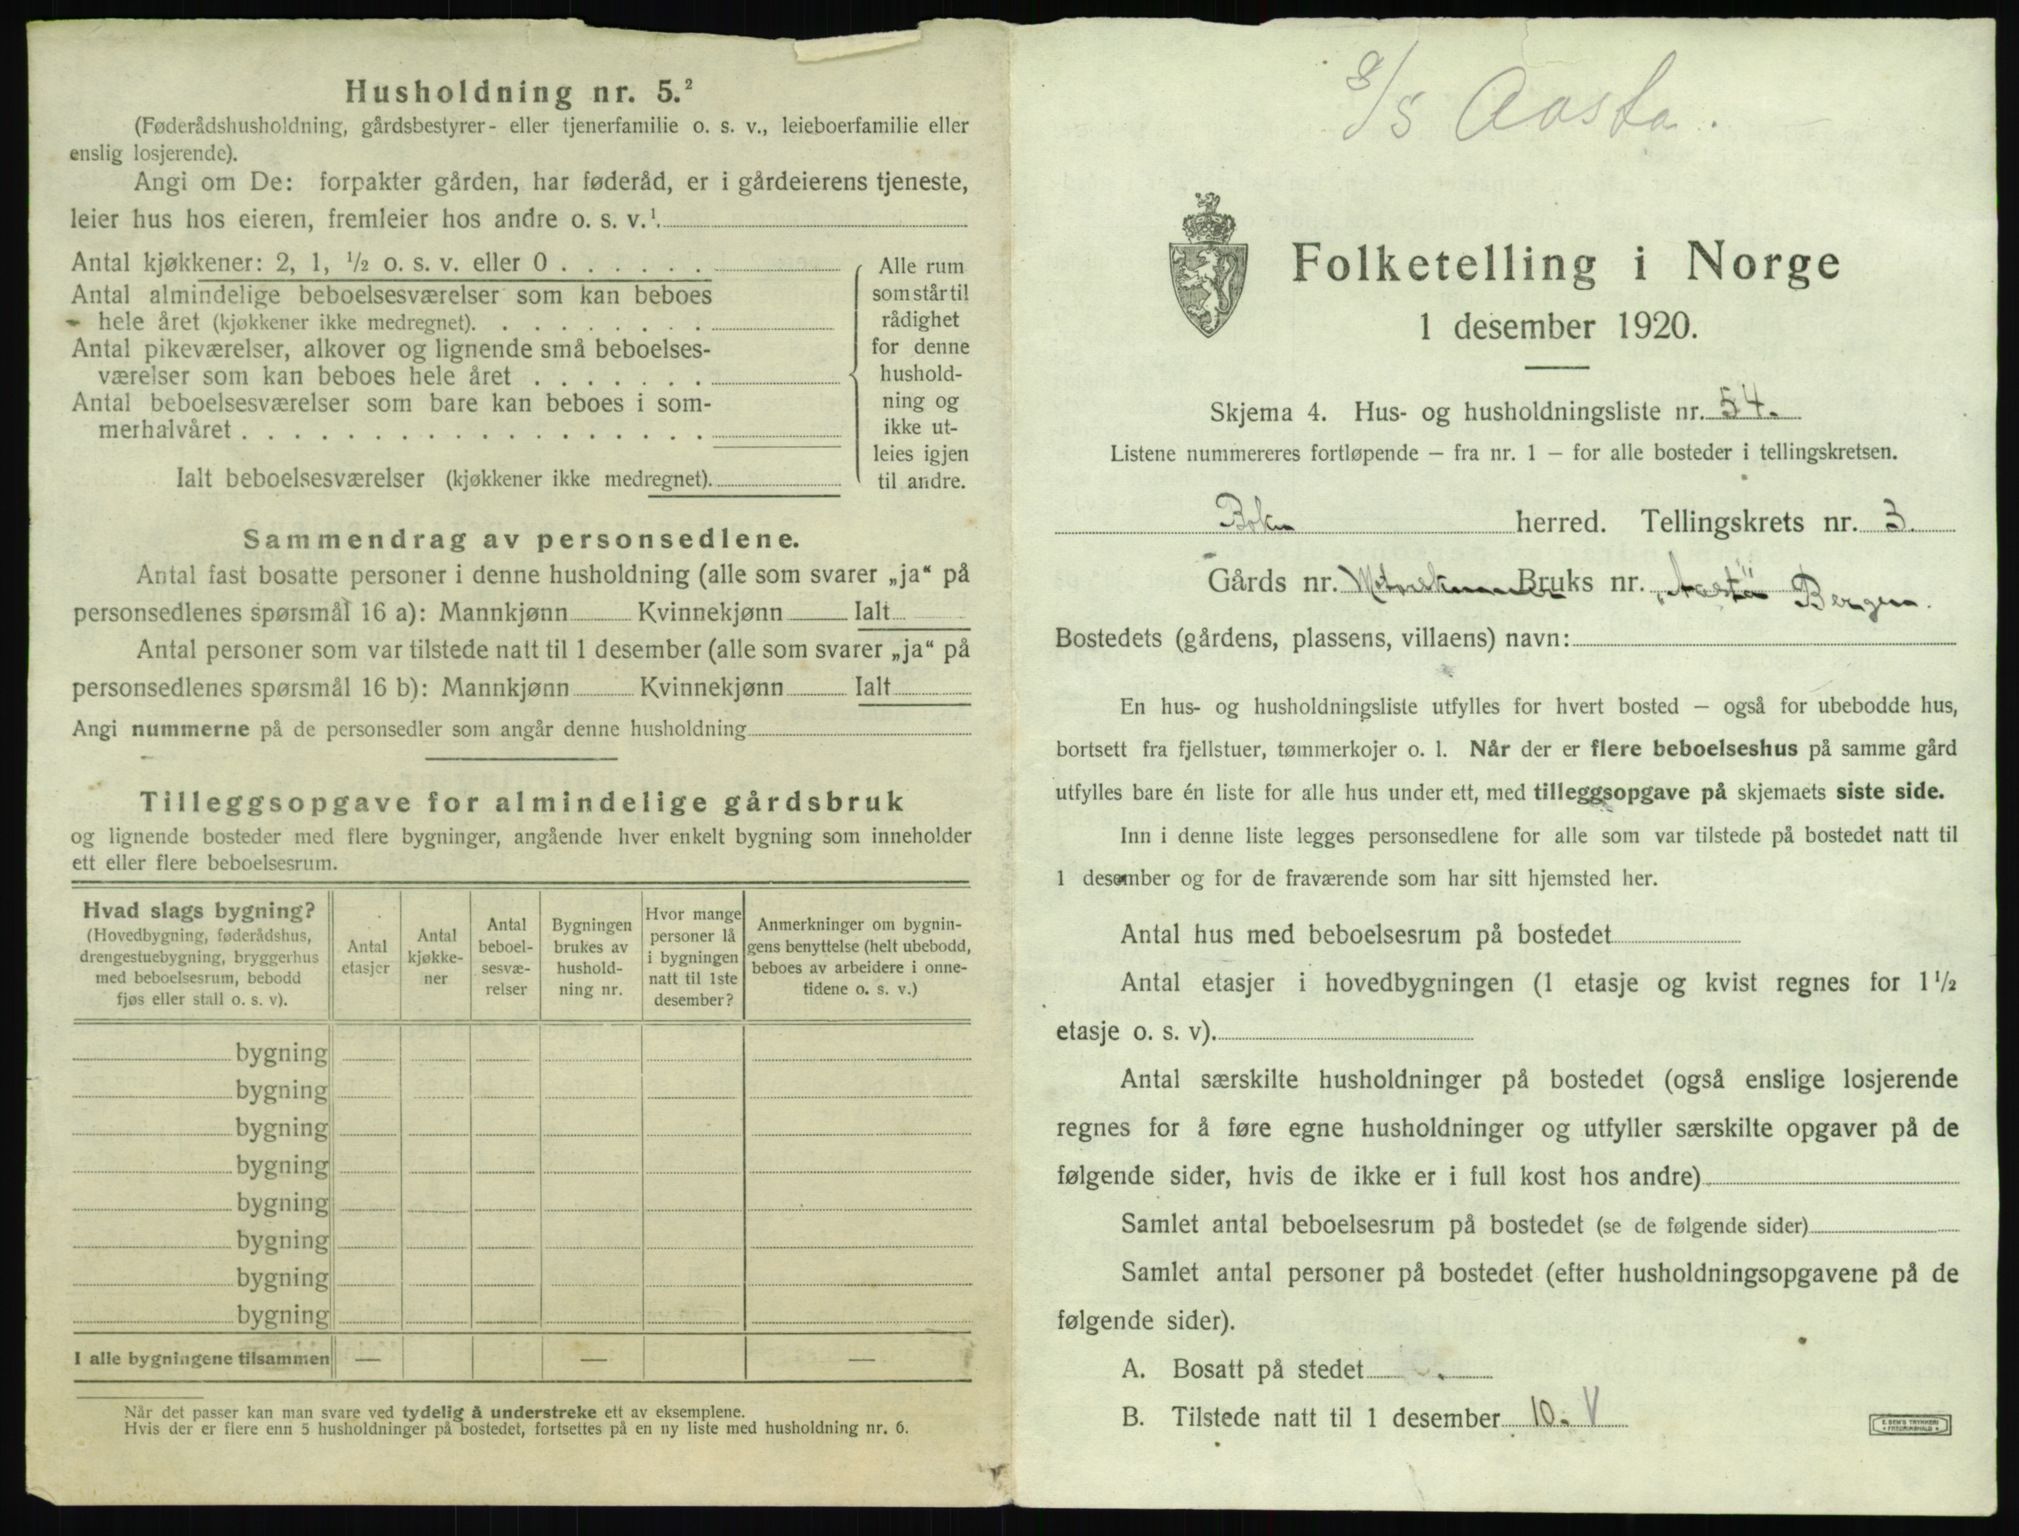 Husholdning nr. 5.²
(Føderådshusholdning, gårdsbestyrer- eller tjenerfamilie o. s. v., leieboerfamilie eller
enslig losjerende).
Angi om De: forpakter gården, har føderåd, er i gårdeierens tjeneste,
leier hus hos eieren, fremleier hos andre o. s. v.¹
Antal kjøkkener: 2, 1, ½ o. s. v. eller 0
Antal almindelige beboelsesværelser som kan beboes
hele året (kjøkkener ikke medregnet).
Antal pikeværelser, alkover og lignende små beboelses-
værelser som kan beboes hele året
Antal beboelsesværelser som bare kan beboes i som-
merhalvåret
Ialt beboelsesværelser (kjøkkener ikke medregnet).
Alle rum
som står til
rådighet
for denne
hushold-
ning og
ikke ut-
leies igjen
til andre.
Sammendrag av personsedlene.
Antal fast bosatte personer i denne husholdning (alle som svarer „ja“ på
personsedlenes spørsmål 16 a): Mannkjønn Kvinnekjønn Ialt
Antal personer som var tilstede natt til 1 desember (alle som svarer „ja“ på
personsedlenes spørsmål 16 b): Mannkjønn Kvinnekjønn Ialt
Angi nummerne på de personsedler som angår denne husholdning
Tilleggsopgave for almindelige gårdsbruk
og lignende bosteder med flere bygninger, angående hver enkelt bygning som inneholder
ett eller flere beboelsesrum.
Hvad slags bygning?
(Hovedbygning, føderådshus,
drengestuebygning, bryggerhus
med beboelsesrum, bebodd
fjøs eller stall o. s. v).
Antal
etasjer
Antal
kjøkke-
ner
Antal
beboel-
sesvæ-
relser
Bygningen
brukes av
hushold-
ning nr.
Hvor mange
personer lå
i bygningen
natt til 1ste
desember?
Anmerkninger om bygnin-
gens benyttelse (helt ubebodd,
beboes av arbeidere i onne-
tidene o. s. v.)
bygning
bygning
bygning
bygning
bygning
bygning
bygning
bygning
I alle bygningene tilsammen — — —
Når det passer kan man svare ved tydelig å understreke ett av eksemplene.
Hvis der er flere enn 5 husholdninger på bostedet, fortsettes på en ny liste med husholdning nr. 6.
S/S Aasta.
Folketelling i Norge
1 desember 1920.
Skjema 4. Hus- og husholdningsliste nr. 54.
Listene nummereres fortløpende – fra nr. 1 – for alle bosteder i tellingskretsen.
Bokn herred. Tellingskrets nr. 3.
Gårds nr. Bruks nr. Bergen.
Bostedets (gårdens, plassens, villaens) navn:
En hus- og husholdningsliste utfylles for hvert bosted – også for ubebodde hus,
bortsett fra fjellstuer, tømmerkojer o. l. Når der er flere beboelseshus på samme gård
utfylles bare én liste for alle hus under ett, med tilleggsopgave på skjemaets siste side.
Inn i denne liste legges personsedlene for alle som var tilstede på bostedet natt til
1 desember og for de fraværende som har sitt hjemsted her.
Antal hus med beboelsesrum på bostedet
Antal etasjer i hovedbygningen (1 etasje og kvist regnes for 1½
etasje o. s. v).
Antal særskilte husholdninger på bostedet (også enslige losjerende
regnes for å føre egne husholdninger og utfyller særskilte opgaver på de
følgende sider, hvis de ikke er i full kost hos andre)
Samlet antal beboelsesrum på bostedet (se de følgende sider)
Samlet antal personer på bostedet (efter husholdningsopgavene på de
følgende sider).
A. Bosatt på stedet
B. Tilstede natt til 1 desember 10. V
E. SEM'S TRYKKERI
FREDRIKSHALD